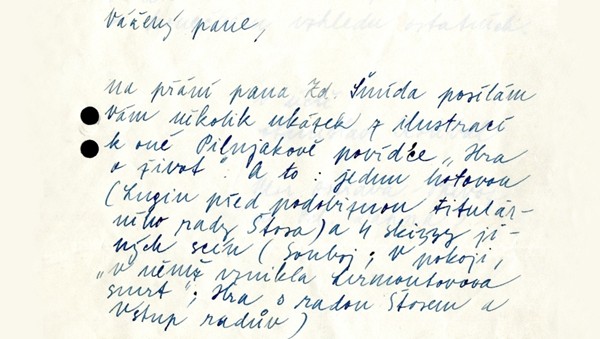 Vážený pane,
na přání pana Zd. Šmída posílám
Vám několik ukázek z ilustrací
k oné Pilňjakově povídce „Hra
o život". A to: jednu hotovou
(Lugin před podobiznou titulár-
ního rady Štosa) a 4 skizzy ji-
ných scén (Souboj; V pokoji,
„v němž vznikla Lermontovova
smrt"; Hra o radou Štosem a
Vstup radův)